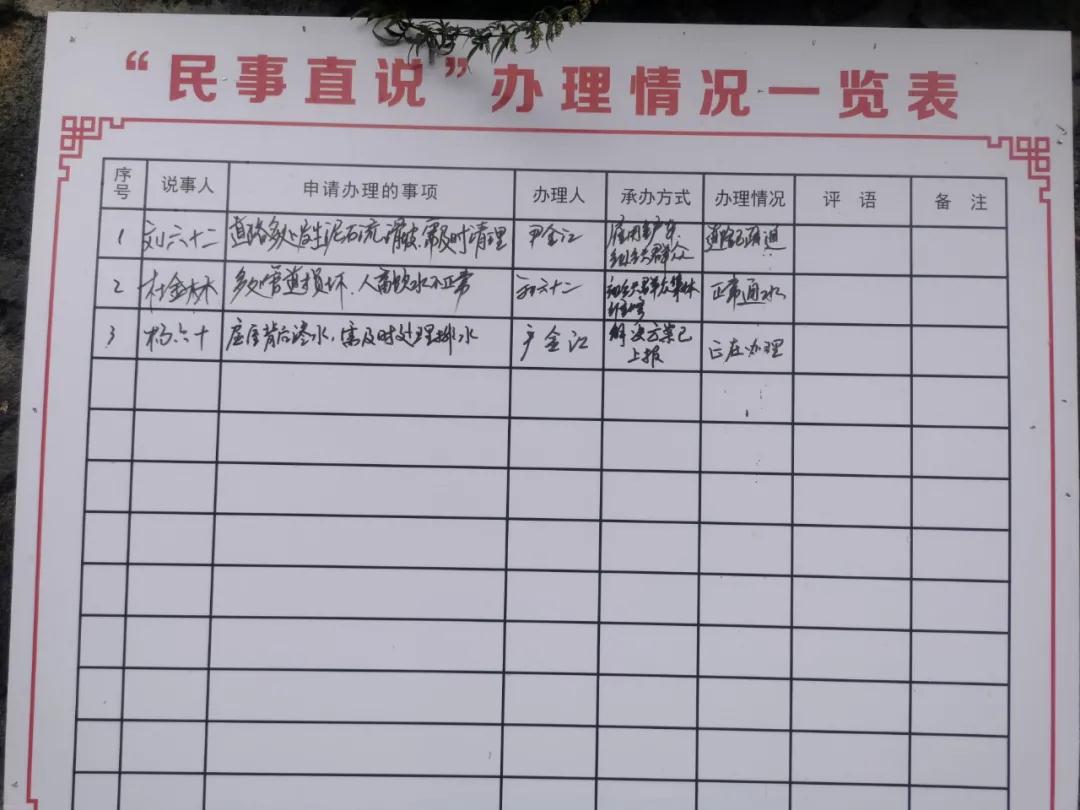 “民事直说”办理情况一览表
序号 说事人 申请办理的事项 办理人 承办方式 办理情况 评语 备注
1 刘六十二 道路多处发生泥石流滑坡,需及时清理 尹金江 雇用铲车,组织群众 道路已疏通
2 杜金林 多处管道损坏,人畜饮水不正常 六十二 组织群众集体 正常通水
3 杨六十 房屋背后渗水,需及时处理排水 金江 解决方案已上报 正在办理